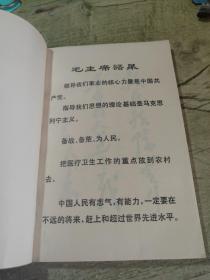 毛主席语录
领导我们事业的核心力量是中国共
产党。
指导我们思想的理论基础是马克思
列宁主义。
备战、备荒、为人民。
把医疗卫生工作的重点放到农村
去。
中国人民有志气，有能力，一定要在
不远的将来，赶上和超过世界先进水平。